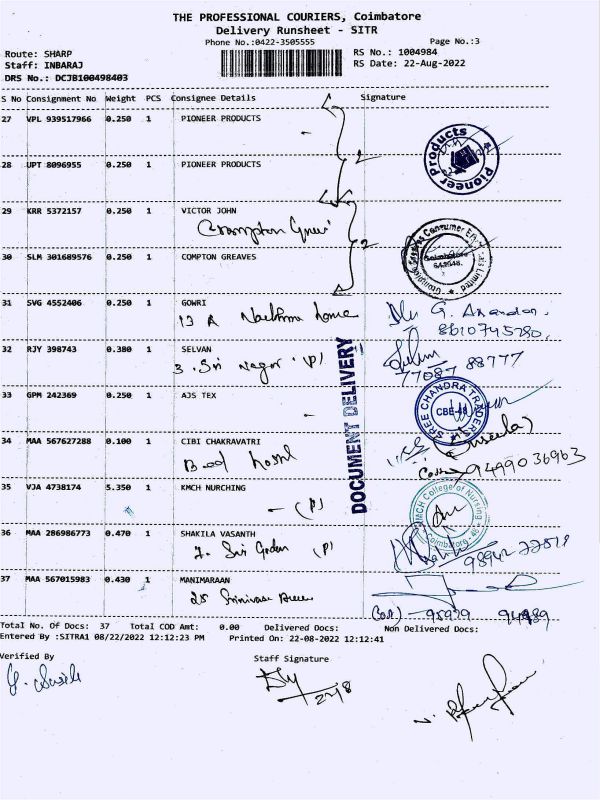 THE PROFESSIONAL COURIERS, Coimbatore
Delivery Runsheet - SITR
Phone No.:0422-3505555 Page No.:3
Route: SHARP RS No.: 1004984
Staff: INBARAJ RS Date: 22-Aug-2022
DRS No.: DCJB100498403
S No Consignment No Weight PCS Consignee Details Signature
27 VPL 939517966 0.250 1 PIONEER PRODUCTS
2
Pioneer Products
28 UPT 8096955 0.250 1 PIONEER PRODUCTS
29 KRR 5372157 0.250 1 VICTOR JOHN
Crompton
2
30 SLM 301689576 0.250 1 COMPTON GREAVES
31 SVG 4552406 0.250 1 GOWRI
13 A home
G. Anandan.
8610745280
32 RJY 398743 0.380 1 SELVAN
3. Sri Nagar (P)
77087 88777
33 GPM 242369 0.250 1 AJS TEX
SREE CHANDRA TRADERS
CBE-48
DOCUMENT DELIVERY
34 MAA 567627288 0.100 1 CIBI CHAKRAVATRI
(Suseela)
9499036963
35 VJA 4738174 5.350 1 KMCH NURCHING
(P)
KMCH College of Nursing
Coimbatore
36 MAA 286986773 0.470 1 SHAKILA VASANTH
7. Sri Garden (P)
37 MAA 567015983 0.430 1 MANIMARAAN
28 Srinivasa
95979 94989
Total No. Of Docs: 37 Total COD Amt: 0.00 Delivered Docs: Non Delivered Docs:
Entered By :SITRA1 08/22/2022 12:12:23 PM Printed On: 22-08-2022 12:12:41
Verified By Staff Signature
22/8